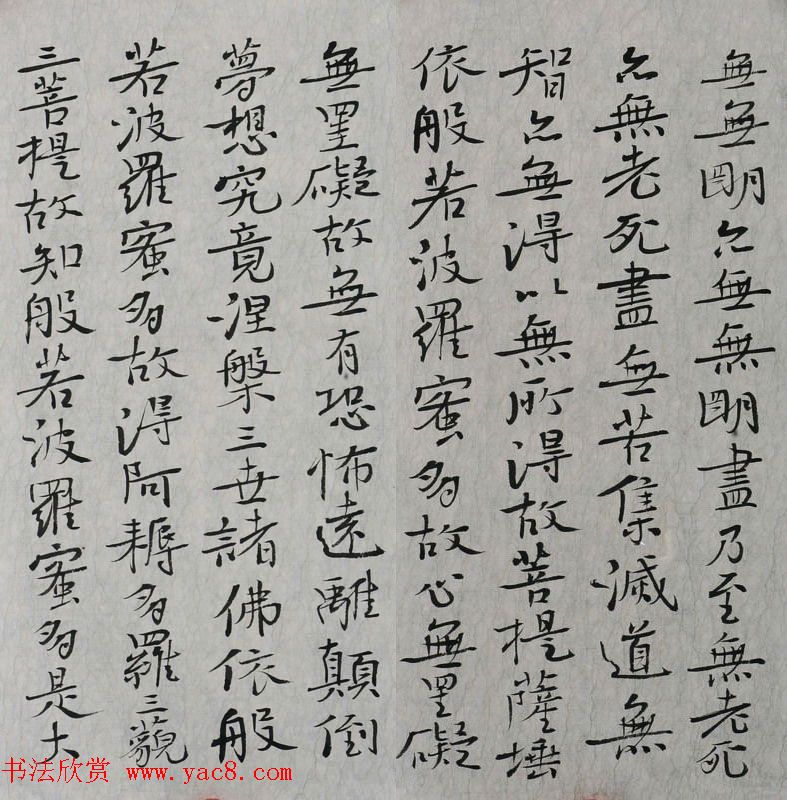 無無明亦無無明盡乃至無老死
亦無老死盡無苦集滅道無
智亦無得以無所得故菩提薩埵
依般若波羅蜜多故心無罣礙
無罣礙故無有恐怖遠離顛倒
夢想究竟涅槃三世諸佛依般
若波羅蜜多故得阿耨多羅三藐
三菩提故知般若波羅蜜多是大
书法欣赏 www.yac8.com